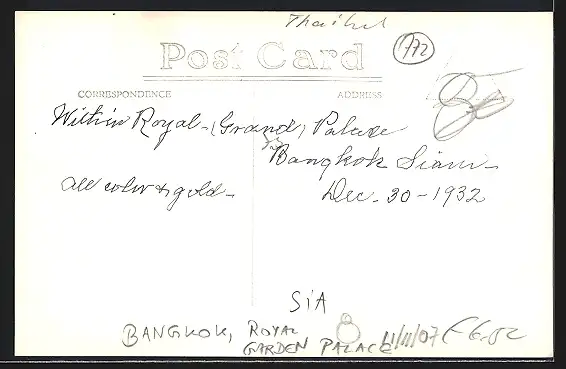 Thaihd
772
Post Card
CORRESPONDENCE ADDRESS
Within Royal-(Grand) Palace
Bangkok Siam-
all color & gold- Dec. 30-1932
SiA
BANGKOK, ROYAL
GARDEN PALACE 11/11/07 £6.52